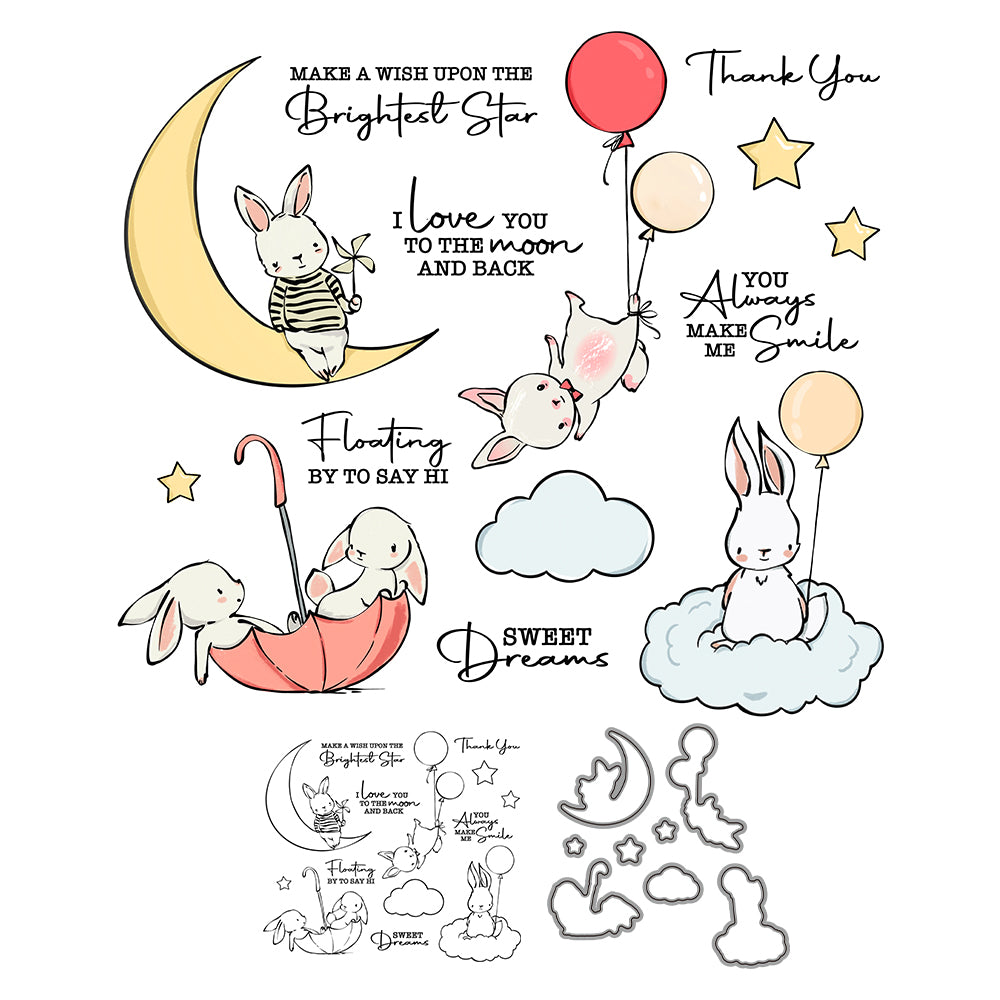 MAKE A WISH UPON THE
Brightest Star
Thank You
I love YOU
TO THE moon
AND BACK
YOU
Always
MAKE
ME Smile
Floating
BY TO SAY HI
SWEET
Dreams
MAKE A WISH UPON THE
Brightest Star
Thank You
I love YOU
TO THE moon
AND BACK
YOU
Always
MAKE
ME Smile
Floating
BY TO SAY HI
SWEET
Dreams